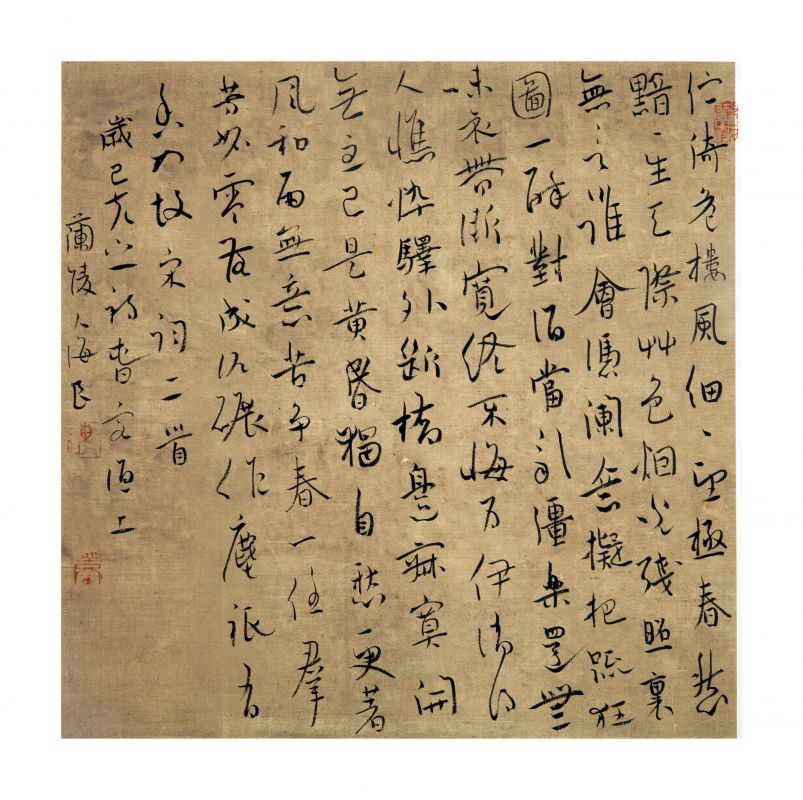 伫倚危樓風細〻望極春愁
黯〻生天際艸色烟光殘照裏
無言誰會憑闌意擬把疏狂
圖一醉對酒當歌彊樂還無
味衣帶漸寬終不悔為伊消得
人憔悴驛外斷橋邊寂寞開
無主已是黃昏獨自愁更著
風和雨無意苦爭春一任羣
芳妒零落成泥碾作塵祇有
香如故宋詞二首
歲己亥
蘭陵人海民